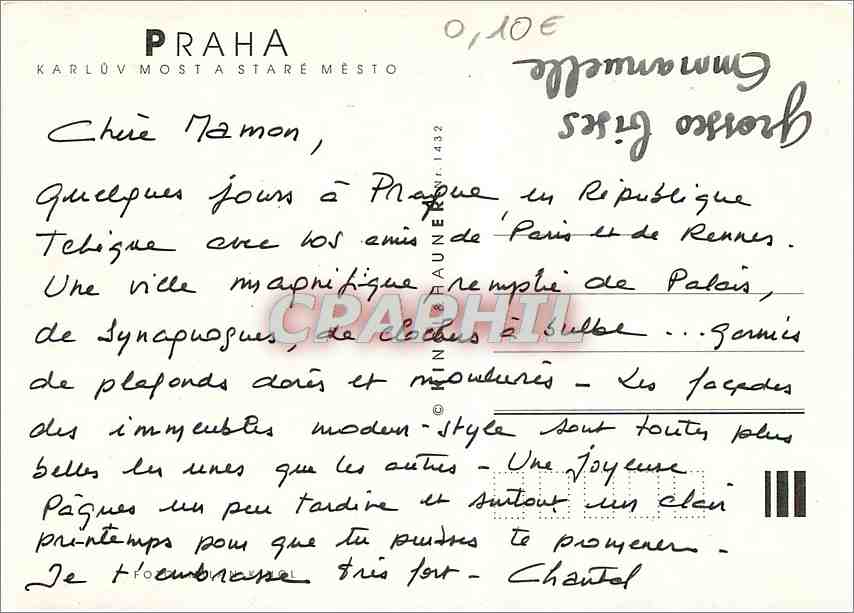 PRAHA
KARLŮV MOST A STARÉ MĚSTO
0,10€
Grosses bises
Emmanuelle
Chère Maman,
quelques jours à Prague, en République
Tchèque avec nos amis de Paris et de Rennes.
Une ville magnifique, remplie de Palais,
de synagnogues, de clochers à bulbe ... garnies
de plafonds dorés et moulurés - Les façades
des immeubles modern-style sont toutes plus
belles les unes que les autres - Une Joyeuse
Pâques un peu tardive et surtout un clair
printemps pour que tu puisses te promener -
Je t'embrasse très fort - Chantal
Nr. 1432
CPAPHIL